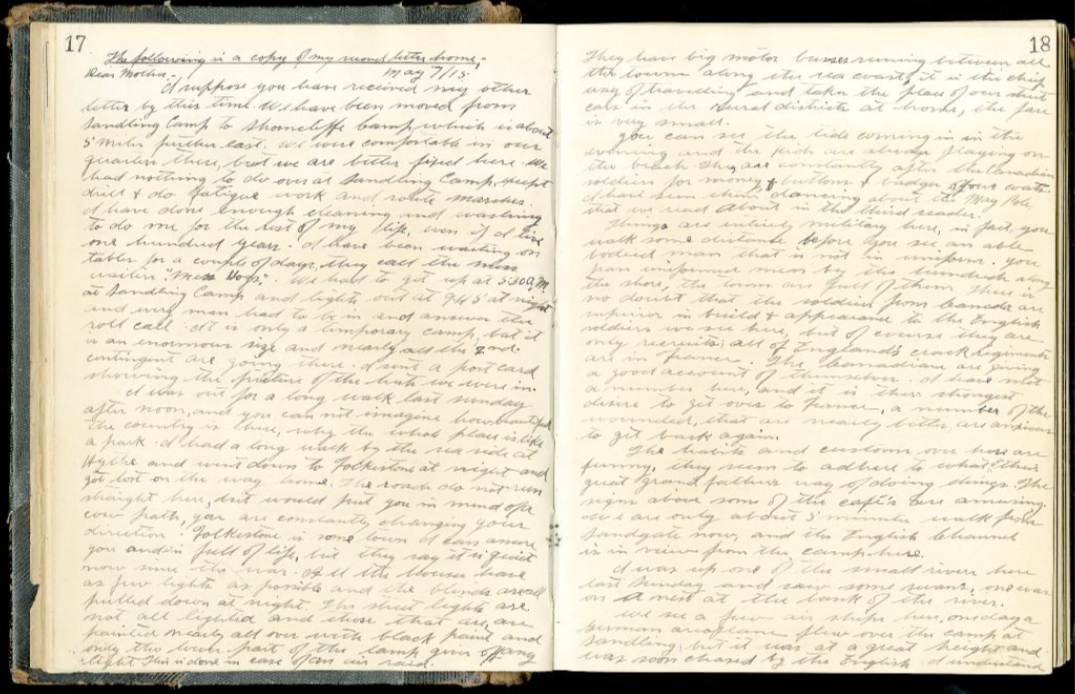 17
The following is a copy of my second letter home,-
Dear Mother,- May 7/15.
I suppose you have received my other
letter by this time. We have been moved from
Sandling Camp to Shorncliffe Camp, which is about
5 miles further east. We were comfortable in our
quarters there, but we are better fixed here. We
had nothing to do over at Sandling Camp, except
drill & do fatigue work and route marches.
I have done enough cleaning and washing
to do me for the rest of my life, even if I live
one hundred years. I have been waiting on
tables for a couple of days, they call the mess
waiters "Mess Hogs". We had to get up at 5:30 A.M.
at Sandling Camp and lights out at 9.45 at night
and every man had to be in and answer the
roll call. It is only a temporary camp, but it
is an enormous size and nearly all the 2nd.
contingent are going there. I sent a post card
showing the picture of the huts we were in.
I was out for a long walk last Sunday
after noon, and you can not imagine how beautiful
the country is here, why the whole place is like
a park. I had a long walk by the sea side at
Hythe and went down to Folkestone at night and
got lost on the way home. The roads do not run
straight here, but would put you in mind of a
cow path, you are constantly changing your
direction. Folkestone is some town I can assure
you and is full of life, but they say it is quiet
now since the war. All the houses have
as few lights as possible and the blinds are all
pulled down at night. The street lights are
not all lighted and those that are, are
painted nearly all over with black paint and
only the lower part of the lamp gives off any
light. This is done in case of an air raid.
18
They have big motor busses running between all
the towns along the sea coast, it is the chief
way of travelling and takes the place of our street
cars in the rural districts at home, the fare
is very small.
You can see the tide coming in in the
evening and the kids are always playing on
the beach. They are constantly after the Canadian
soldiers for money & buttons & badges off our coats.
I have seen them dancing about the May Pole,
that we read about in the third reader.
Things are entirely military here, in fact, you
walk some distance before you see an able
bodied man that is not in uniform. You
pass uniformed men by the hundreds along
the shore, the towns are full of them. There is
no doubt that the soldiers from Canada are
superior in build & appearance to the English
soldiers we see here, but of course they are
only recruits; all of England's crack regiments
are in France. The Canadians are giving
a good account of themselves. I have met
a number here, and it is their strongest
desire to get over to France, a number of the
wounded, that are nearly better are anxious
to get back again.
The habits and customs over here are
funny, they seem to adhere to what their
great Grand fathers way of doing things. The
signs above some of the café's are amusing.
We are only about 5 minutes walk from
Sandgate now, and the English Channel
is in view from the camp here.
I was up one of the small rivers here
last Sunday and saw some swans, one was
on a nest at the bank of the river.
We see a few air ships here, one day a
German aeroplane flew over the camp at
Sandling, but it was at a great height and
was soon chased by the English. I understand